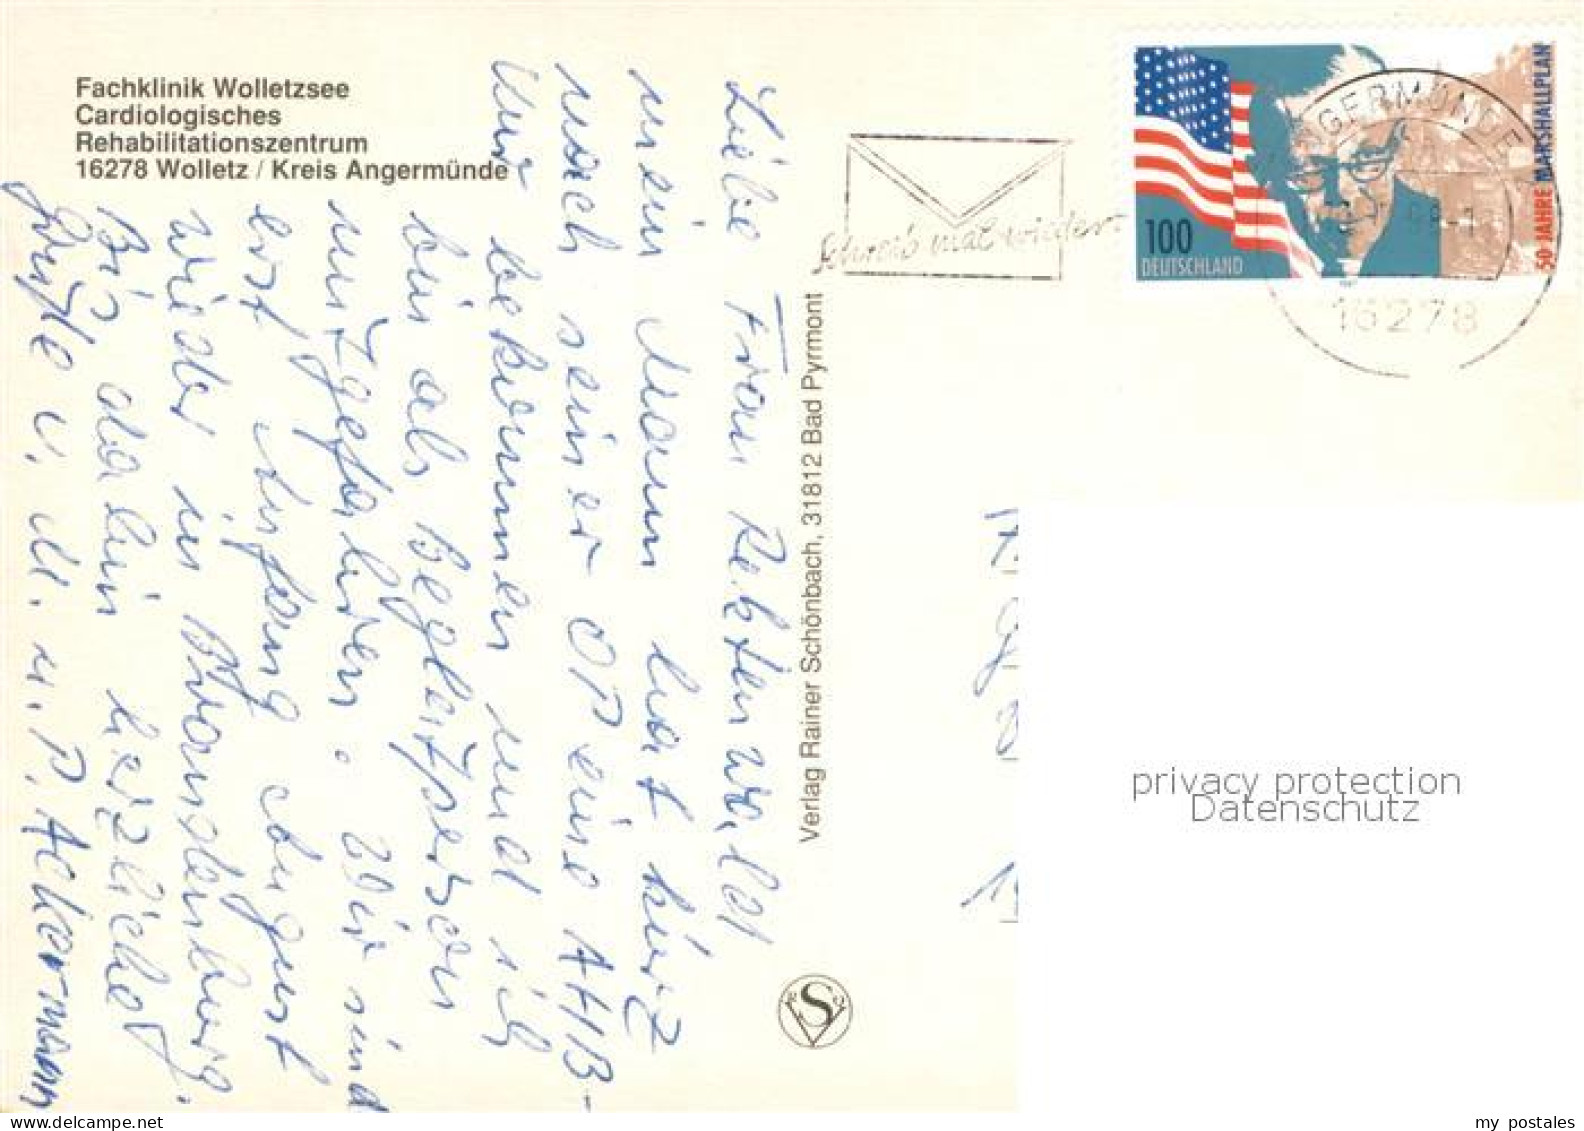 Fachklinik Wolletzsee
Cardiologisches
Rehabilitationszentrum
16278 Wolletz / Kreis Angermünde
Liebe Frau Rektenwald
mein Mann hat kurz
nach seiner OP eine AHB-
Kur bekommen und ich
bin als Begleitperson
mitgefahren. Wir sind
erst Anfang August
wieder in Brandenburg.
Bis dahin herzliche
Grüße v. M. u. P. Ackermann
Verlag Rainer Schönbach, 31812 Bad Pyrmont
S
Schreib mal wieder
100
DEUTSCHLAND
50 JAHRE MARSHALLPLAN
ANGERMÜNDE
16278
privacy protection
Datenschutz
my postales